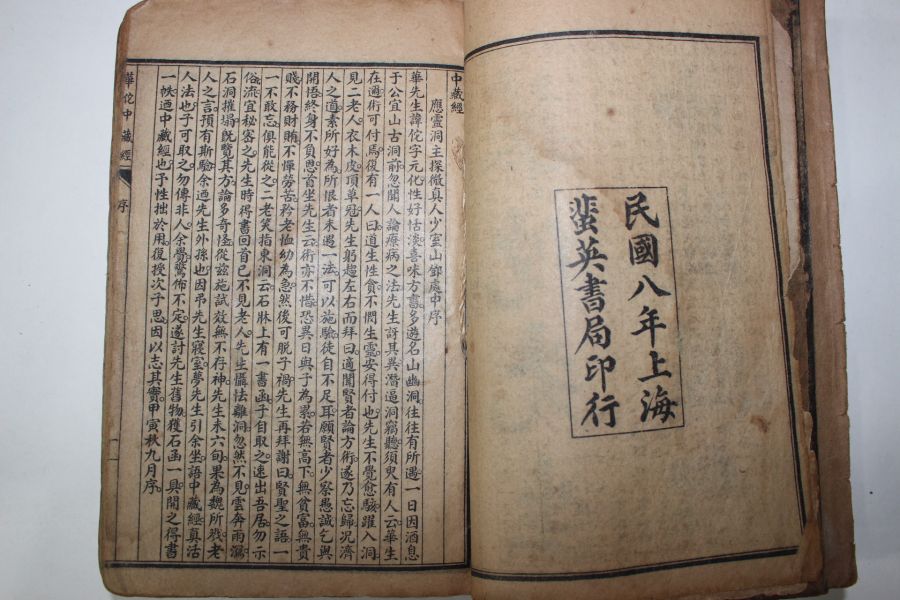 民國八年上海
蜚英書局印行
中藏經
應靈洞主探微真人少室山鄧處中序
華先生諱佗字元化性好恬淡喜味方書多遊名山幽洞往往有所遇一日因酒息
于公宜山古洞前忽聞人論療病之法先生訝其異潛逼洞竊聽須臾有人云華生
在邇術可付焉復有一人曰道生性貪不憫生靈安得付也先生不覺愈駭躍入洞
見二老人衣木皮頂草冠先生躬趨左右而拜曰適聞賢者論方術遂乃忘歸況濟
人之道素所好為所恨者未遇一法可以施驗徒自不足耳願賢者少察愚誠乞與
開悟終身不負恩首坐先生云術亦不惜恐異日與子為累若無高下無貧富無貴
賤不務財賄不憚勞苦矜老恤幼為急然後可脫子禍先生再拜謝曰賢聖之語一
一不敢忘俱能從之二老笑指東洞云石牀上有一書函子自取之速出吾居勿示
俗流宜秘密之先生時得書回首已不見老人先生懾怯離洞忽然不見雲奔雨瀉
石洞摧塌旣覽其方論多奇怪從茲施試效無不存神先生未六旬果為魏所戕老
人之言預有斯驗余迺先生外孫也因弔先生寢室夢先生引余坐語中藏經真活
人法也子可取之勿傳非人余覺驚怖不定遂討先生舊物獲石函一具開之得書
一帙迺中藏經也予性拙於用復授次子思因以志其實甲寅秋九月序
華佗中藏經
序